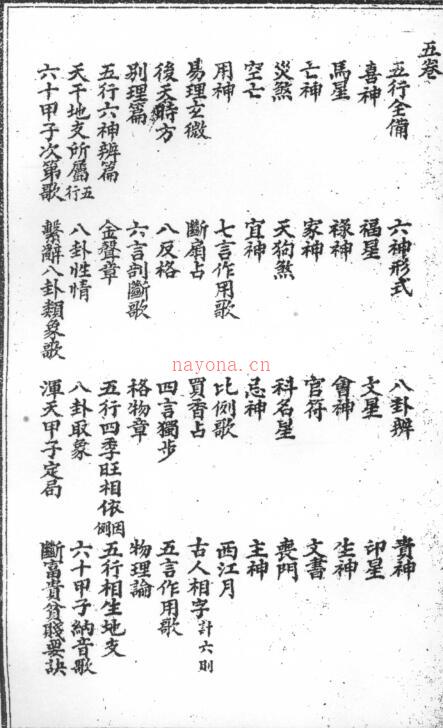 五卷
五行全備 六神形式 八卦辨 貴神
喜神 福星 文星 印星
馬星 祿神 會神 生神
亡神 家神 官符 文書
災煞 天狗煞 科名星 喪門
空亡 宜神 忌神 主神
用神 七言作用歌 比例歌 西江月
易理玄微 斷扇占 買香占 古人相字計六則
後天時方 八反格 四言獨步 五言作用歌
別理篇 六言剖斷歌 格物章 物理論
五行六神辨篇 金聲章 五行四季旺相依因例 五行相生地支
天干地支所屬五行 八卦性情 八卦取象 六十甲子納音歌
六十甲子次第歌 繫辭八卦類象歌 渾天甲子定局 斷富貴貧賤要訣
nayona.cn